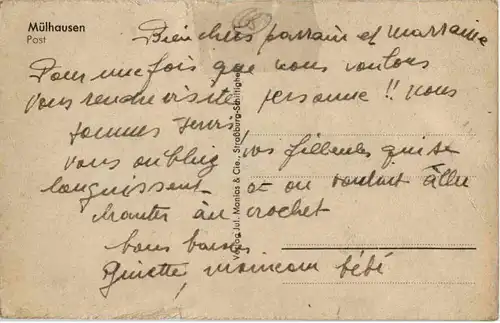 Mülhausen
Post
Bien chers parrain et marraine
Pour une fois que nous voulons
vous rendre visite, personne !! nous
sommes servi,
vous oubliez vos filleules qui se
languissent et on voulait aller
au crochet
bons baisers
Ginette, bébé
Verlag Jul. Manias & Cie., Straßburg-Schiltigheim